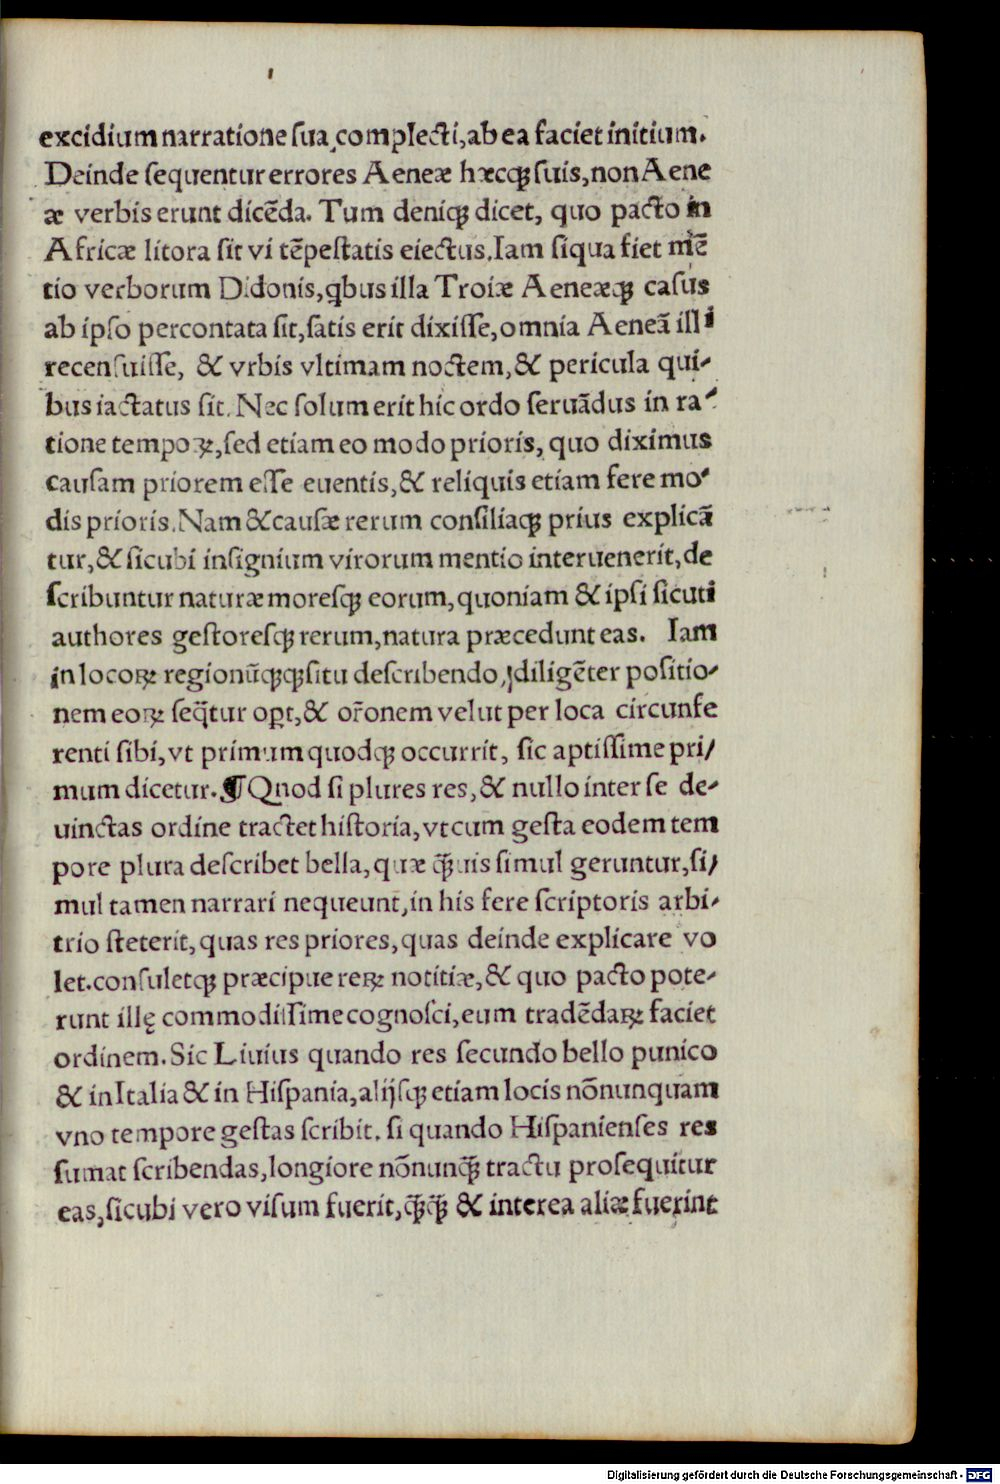 excidium narratione sua complecti, ab ea faciet initium.
Deinde sequentur errores Aeneæ hæcqꝫ suis, non Aene
æ verbis erunt dicẽda. Tum deniqꝫ dicet, quo pacto in
Africæ litora sit vi tẽpestatis eiectus. Iam siqua fiet mẽ
tio verborum Didonis, q̇bus illa Troiæ Aeneæqꝫ casus
ab ipso percontata sit, satis erit dixisse, omnia Aeneã illi
recensuisse, & vrbis vltimam noctem, & pericula qui-
bus iactatus sit. Nec solum erit hic ordo seruãdus in ra-
tione tempoꝝ, sed etiam eo modo prioris, quo diximus
causam priorem esse euentis, & reliquis etiam fere mo-
dis prioris. Nam & causæ rerum consiliaqꝫ prius explicã
tur, & sicubi insignium virorum mentio interuenerit, de
scribuntur naturæ moresqꝫ eorum, quoniam & ipsi sicuti
authores gestoresqꝫ rerum, natura præcedunt eas. Iam
in locoꝝ regionũqꝫqꝫ situ describendo, diligẽter positio-
nem eoꝝ seq̃tur oꝑt, & or̃onem velut per loca circunfe
renti sibi, vt primum quodqꝫ occurrit, sic aptissime pri/
mum dicetur. ¶ Quod si plures res, & nullo inter se de-
uinctas ordine tractet historia, vt cum gesta eodem tem
pore plura describet bella, quæ q̃ꝫuis simul geruntur, si/
mul tamen narrari nequeunt, in his fere scriptoris arbi-
trio steterit, quas res priores, quas deinde explicare vo
let. consuletqꝫ præcipue reꝝ notitiæ, & quo pacto pote-
runt illę commodissime cognosci, eum tradẽdaꝝ faciet
ordinem. Sic Liuius quando res secundo bello punico
& in Italia & in Hispania, alijsqꝫ etiam locis nõnunquam
vno tempore gestas scribit. si quando Hispanienses res
sumat scribendas, longiore nõnunq̃ꝫ tractu prosequitur
eas, sicubi vero visum fuerit, q̃ꝫq̃ꝫ & interea aliæ fuerint
Digitalisierung gefördert durch die Deutsche Forschungsgemeinschaft - DFG